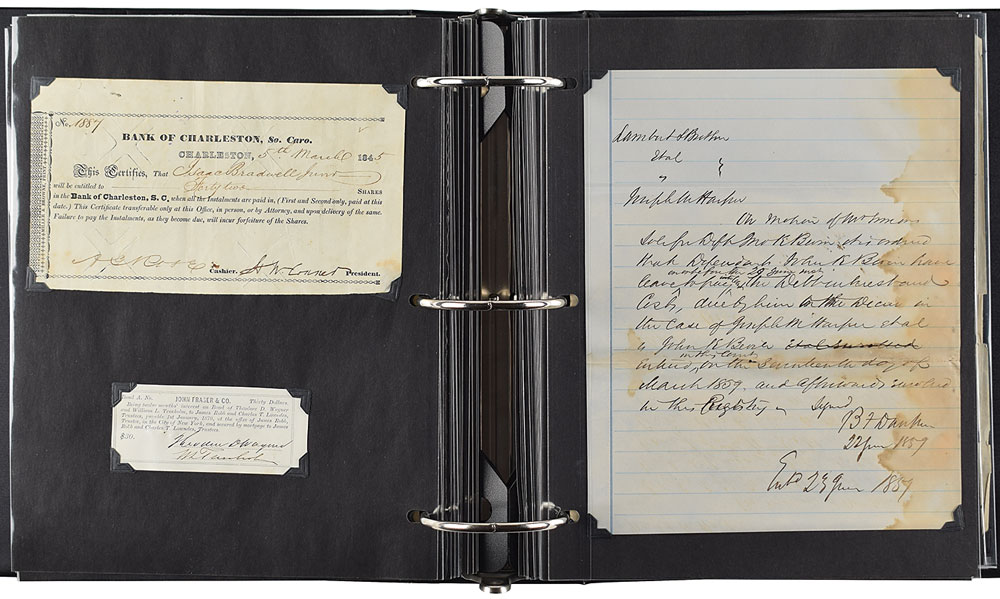 No. 1887
BANK OF CHARLESTON, So. Caro.
CHARLESTON, 5th March 1845
This Certifies, That Isaac Bradwell Junr
will be entitled to Forty two SHARES
in the Bank of Charleston, S. C. when all the Instalments are paid in, (First and Second only, paid at this
date.) This Certificate transferable only at this Office, in person, or by Attorney, and upon delivery of the same.
Failure to pay the Instalments, as they become due, will incur forfeiture of the Shares.
Cashier. President.
Bond A. No. JOHN FRASER & CO. Thirty Dollars.
Being twelve months' interest in Bond of Theodore D. Wagner
and William L. Trenholm, to James Robb and Charles T. Lowndes,
Trustees, payable 1st January, 1870, at the office of James Robb,
Trustee, in the City of New York, and secured by mortgage to James
Robb and Charles T. Lowndes, Trustees.
$30. Theodore D Wagner
W L Trenholm
Lambert & Brother
et al
vs
Joseph M Harper
On motion of
Sol for Deft Jno K it is ordered
that Defendant John K have
leave to the Debt interest and
Costs, due by him in the Decree in
the Case of Joseph M Harper et al
vs John K
in this Court
entered, on the Seventeenth day of
March 1859. and afterwards enrolled
in this Registry Signed
22 June 1859
Entd 23 June 1859